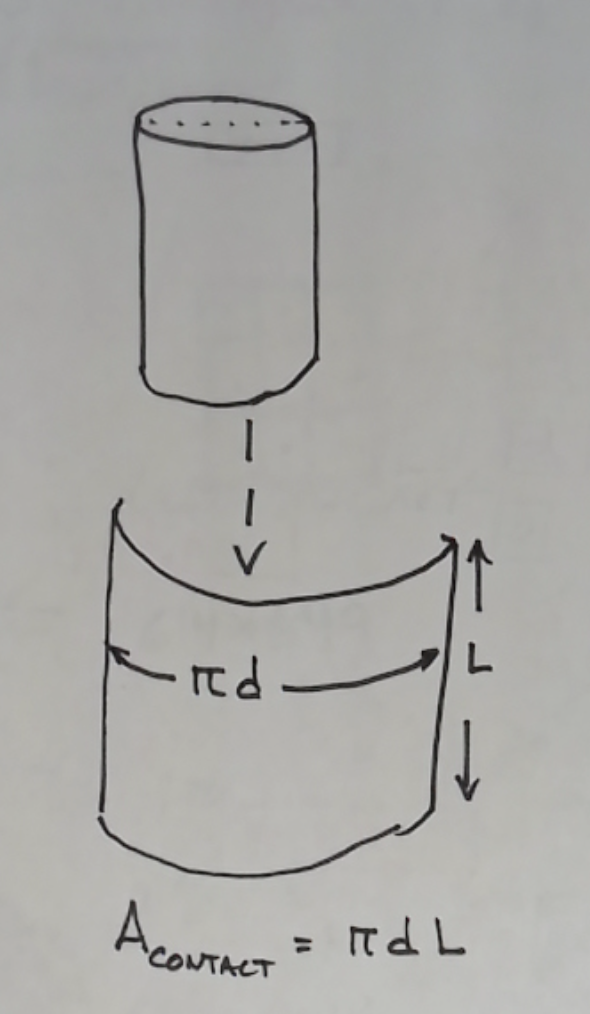 πd
L
A CONTACT = πdL